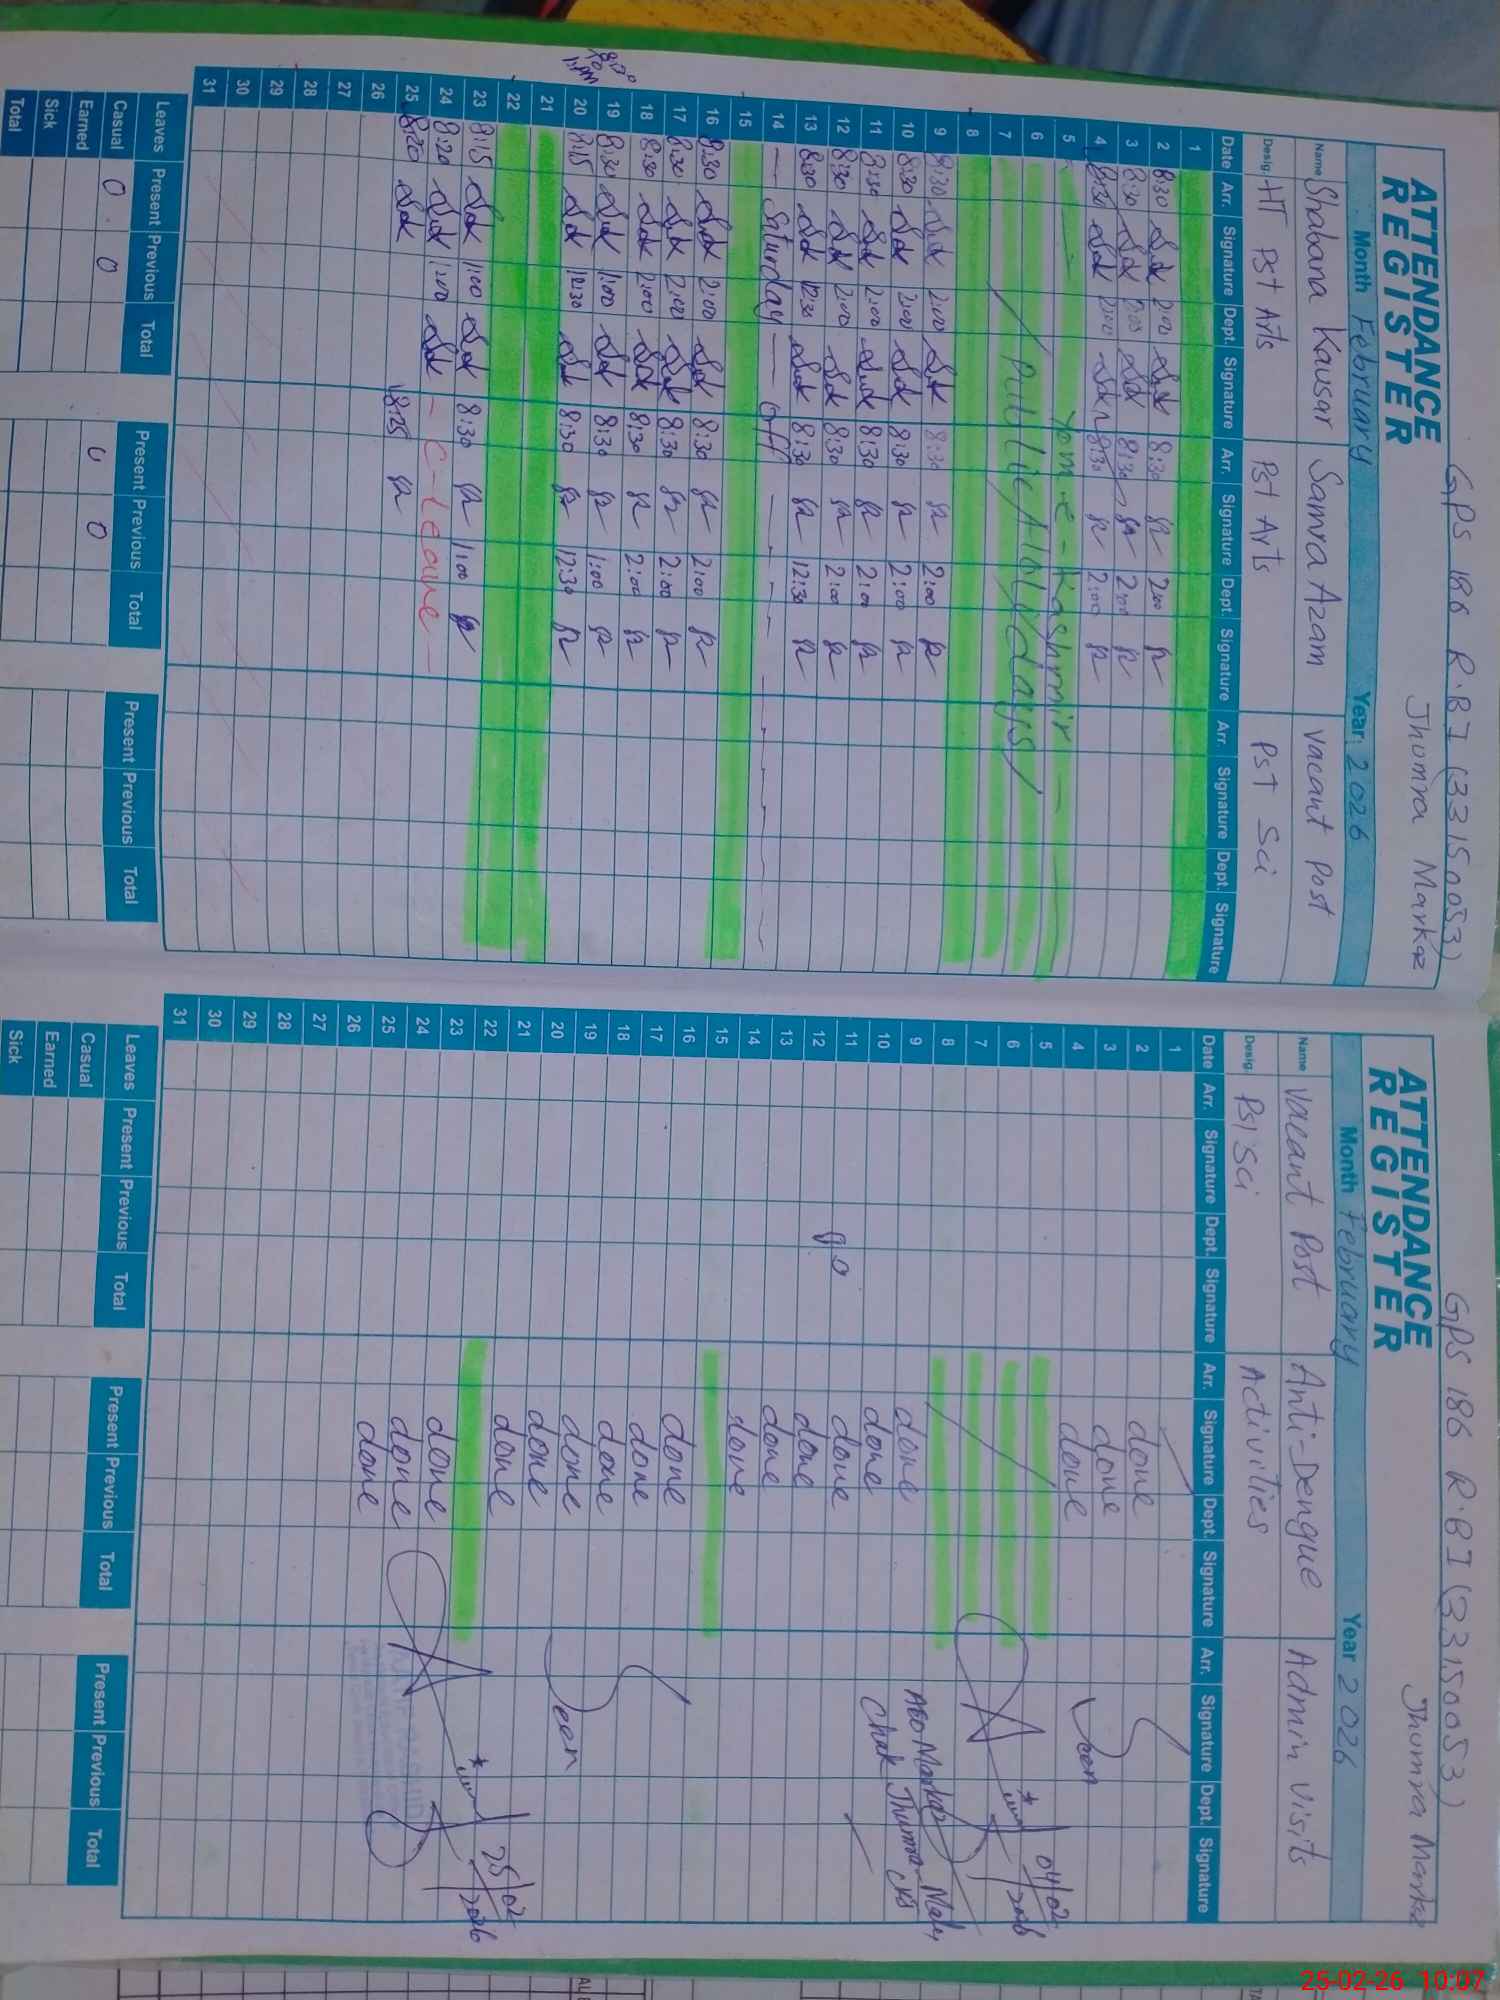 GPS 186 R.BI (33150053)
Jhumra Markaz
ATTENDANCE
REGISTER
Month February Year 2026
Name Shabana Kausar Samra Azam Vacant Post
Desig. HT PST Arts PST Arts PST Sci
Date Arr. Signature Dept. Signature Arr. Signature Dept. Signature Arr. Signature Dept. Signature
1
2 8:30 2:00 8:30 2:00
3 8:30 2:00 8:30 2:00
4 8:30 2:00 8:30 2:00
5 Yom-e-Kashmir
6
7 / Public Holidays /
8
9 8:30 2:00 8:30 2:00
10 8:30 2:00 8:30 2:00
11 8:30 2:00 8:30 2:00
12 8:30 2:00 8:30 2:00
13 8:30 12:30 8:30 12:30
14 — Saturday — Off —
15
16 8:30 2:00 8:30 2:00
17 8:30 2:00 8:30 2:00
18 8:30 2:00 8:30 2:00
19 8:30 1:00 8:30 1:00
20 8:15 12:30 8:30 12:30
8:30
to
1:pm
21
22
23 8:15 1:00 8:30 1:00
24 8:20 1:00 - C-leave -
25 8:20 8:25
26
27
28
29
30
31
Leaves Present Previous Total Present Previous Total Present Previous Total
Casual 0 0 0 0
Earned
Sick
Total
GPS 186 R.BI (33150053)
Jhumra Markaz
ATTENDANCE
REGISTER
Month February Year 2026
Name Vacant Post Anti-Dengue Admin Visits
Desig. PST Sci Activities
Date Arr. Signature Dept. Signature Arr. Signature Dept. Signature Arr. Signature Dept. Signature
1
2 done
3 done
4 done Seen
5 04/02/2026
6
7
8
9 done AEO Markaz Male
10 done Chak Jhumra
11 done
12 done
13 done
14 done
15 done
16
17 done
18 done
19 done
20 done Seen
21 done
22 done
23 25/02/2026
24 done
25 done
26 done
27
28
29
30
31
Leaves Present Previous Total Present Previous Total Present Previous Total
Casual
Earned
Sick
25-02-26 10:07